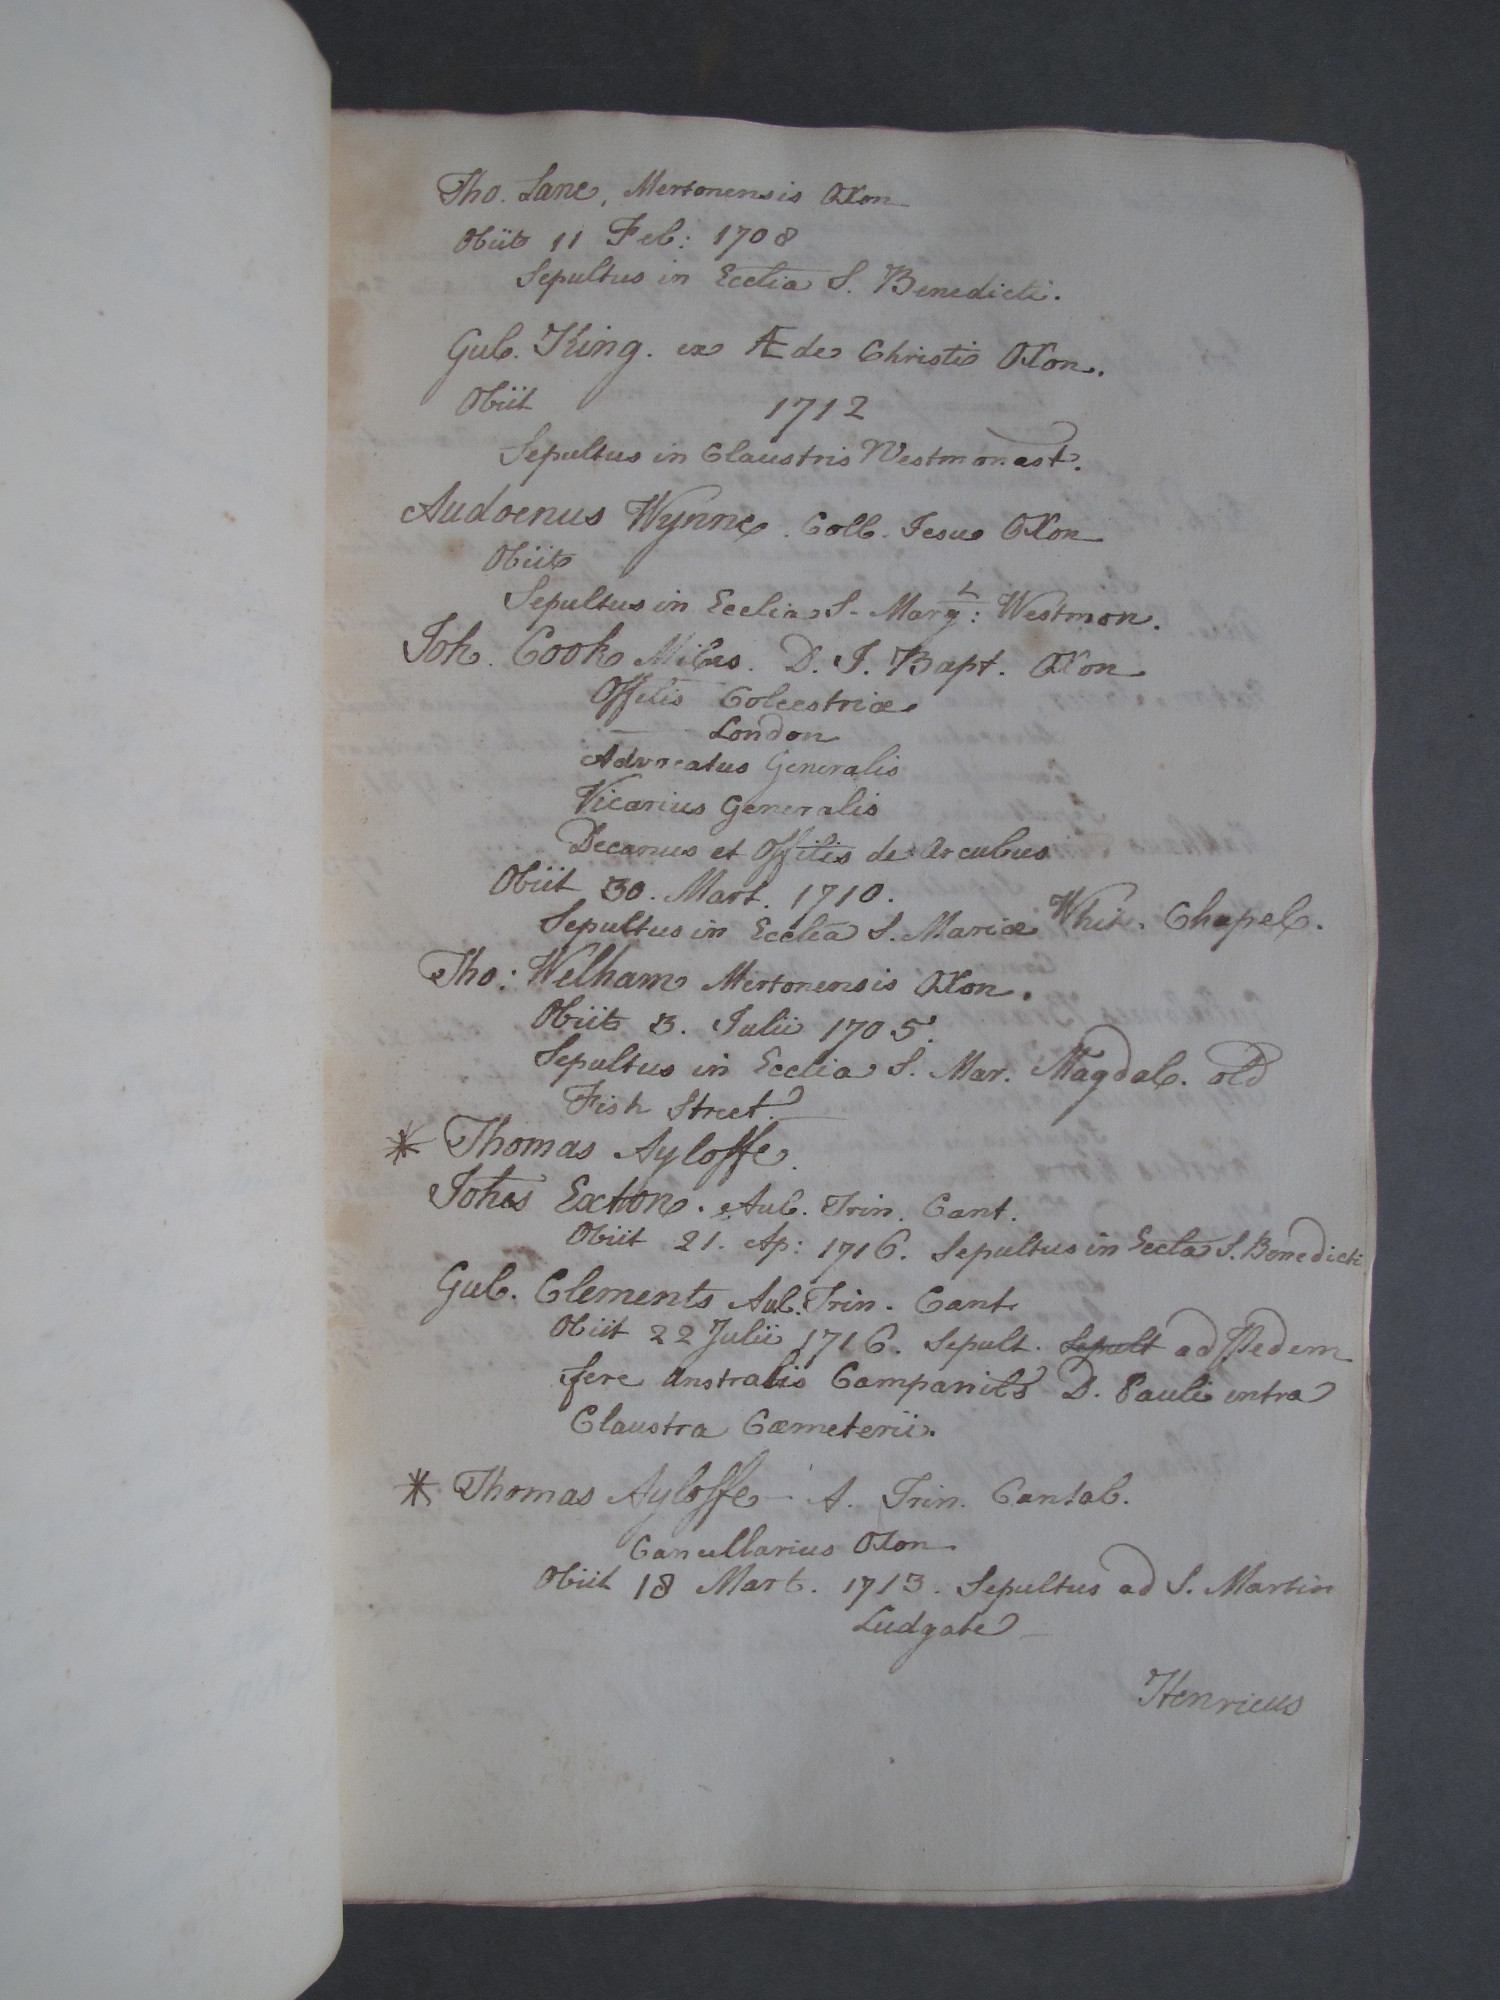 Tho. Lane, Mertonensis Oxon
Obiit 11 Feb: 1708
Sepultus in Ecclia S. Benedicti.
Gul. King. ex Æde Christi Oxon.
Obiit 1712
Sepultus in Claustris Westmonast.
Audoenus Wynne. Coll. Jesu Oxon
Obiit
Sepultus in Ecclia S. Marg: Westmon.
Joh. Cook Miles. D. J. Bapt. Oxon
Offilis Colcestriæ
— London
Advocatus Generalis
Vicarius Generalis
Decanus et Offilis de Arcubus
Obiit 30. Mart. 1710.
Sepultus in Ecclia S. Mariæ Whit. Chapel.
Tho: Welham Mertonensis Oxon.
Obiit 3. Julii 1705.
Sepultus in Ecclia S. Mar. Magdal. old
Fish Street.
* Thomas Ayloffe.
Johes Exton. Aul. Trin. Cant.
Obiit 21. Ap: 1716. Sepultus in Eccla S. Benedicti
Gul. Clements Aul. Trin. Cant
Obiit 22 Julii 1716. Sepult. Sepult ad Pedem
fere Australis Campanils D. Pauli intra
Claustra Cæmeterii.
* Thomas Ayloffe - A. Trin. Cantab.
Cancellarius Oxon
Obiit 18 Mart. 1713. Sepultus ad S. Martin
Ludgate
Henricus